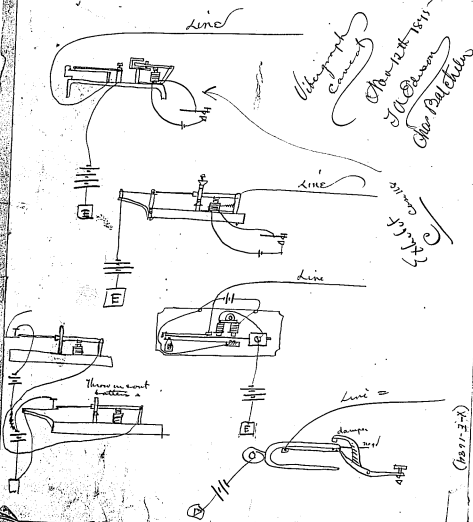 Line
Vibragraph
Caveat
Nov 12th 1875
T A Edison
Chas Batchelor
Line
Exhibit
C
E
E
Line
Throw in & out
battery
E
Line =
damper
(X-E-1684)